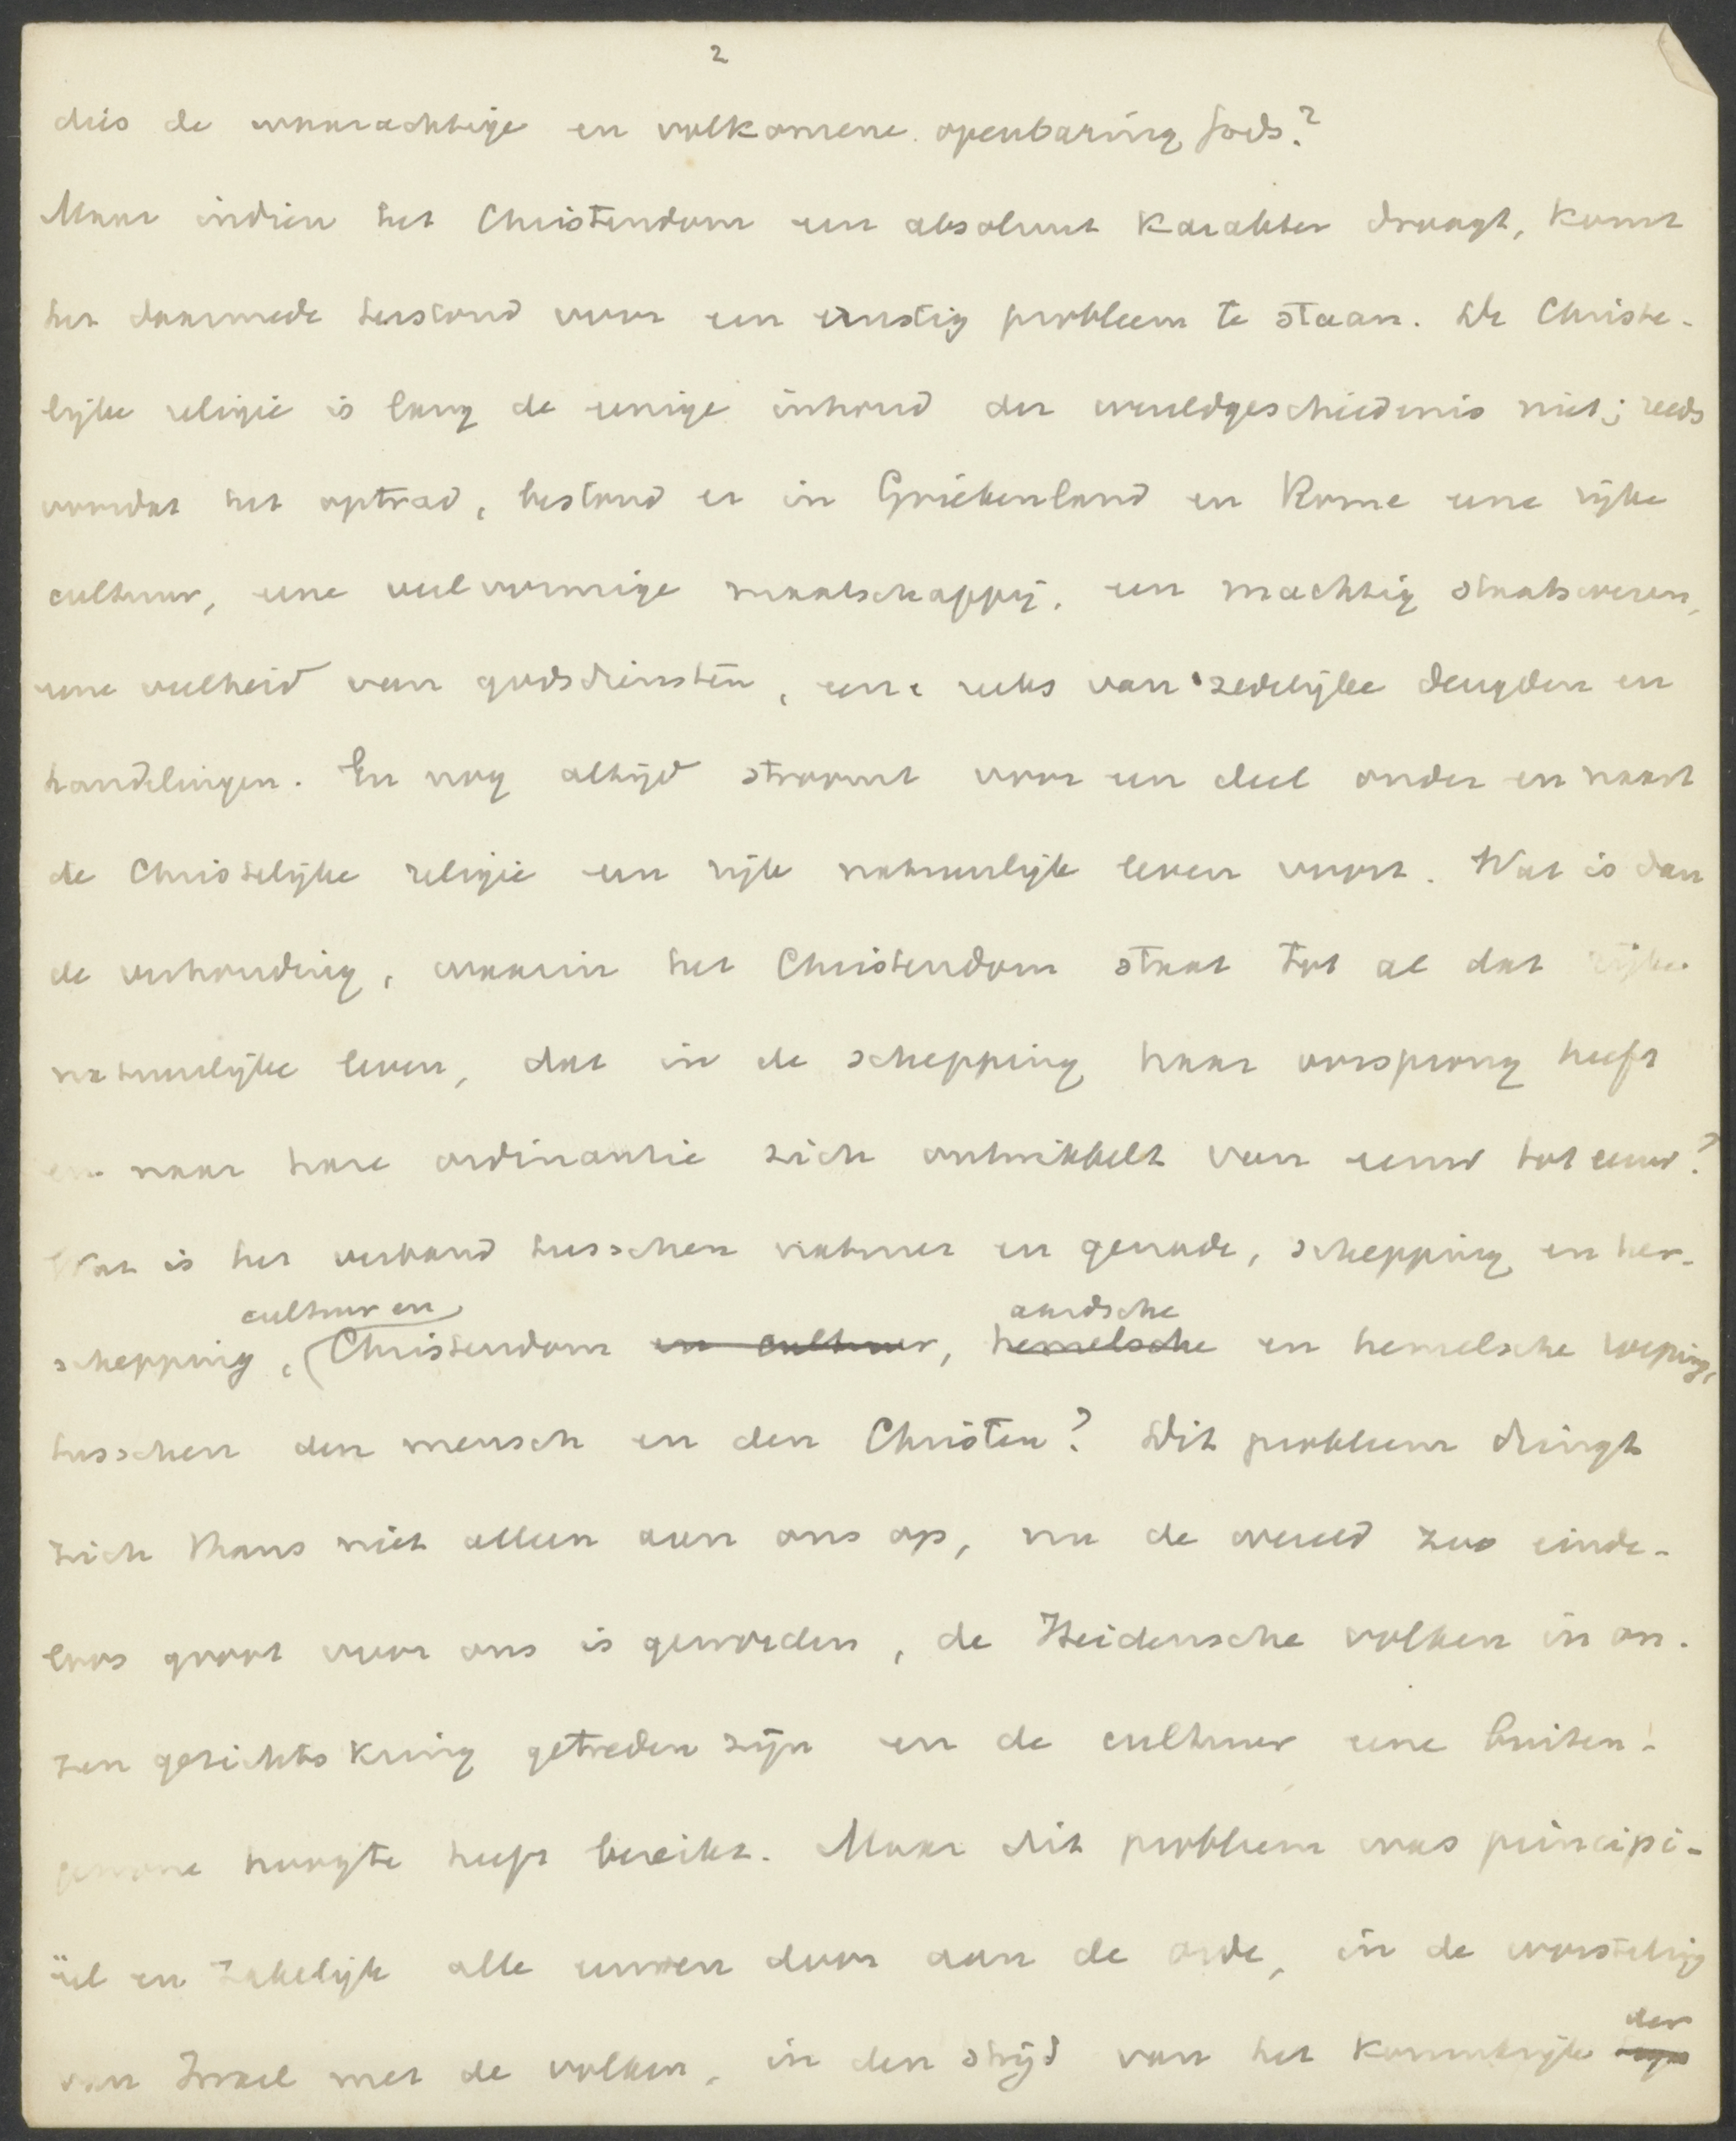 2
dus de waarachtige en volkomene openbaring Gods?
Maar indien het Christendom een absoluut karakter draagt, komt
het daarmede terstond voor een ernstig probleem te staan. De Christe-
lijke religie is lang de eenige inhoud der wereldgeschiedenis niet; reeds
voordat het optrad, bestond er in Griekenland en Rome eene rijke
cultuur, eene veelvormige maatschappij, een machtig staatswezen,
eene veelheid van godsdiensten, eene reeks van zedelijke deugden en
handelingen. En nog altijd stroomt voor een deel onder en naast
de Christelijke religie een rijk natuurlijk leven voort. Wat is dan
de verhouding, waarin het Christendom staat tot al dat rijke
natuurlijke leven, dat in de schepping haar oorsprong heeft
en naar hare ordinantie zich ontwikkelt van eeuw tot eeuw?
Wat is het verband tusschen natuur en genade, schepping en her-
cultuur en aardsche
schepping, Christendom en cultuur, hemelsche en hemelsche roeping,
tusschen den mensch en den Christen? Dit probleem dringt
zich thans niet alleen aan ons op, nu de wereld zoo einde-
loos groot voor ons is geworden, de Heidensche volken in on-
zen gezichtskring getreden zijn en de cultuur eene buiten-
gewone hoogte heeft bereikt. Maar dit probleem was principi-
ëel en zakelijk alle eeuwen door aan de orde, in de worsteling
der
van Israel met de volken, in den strijd van het Koninkrijk